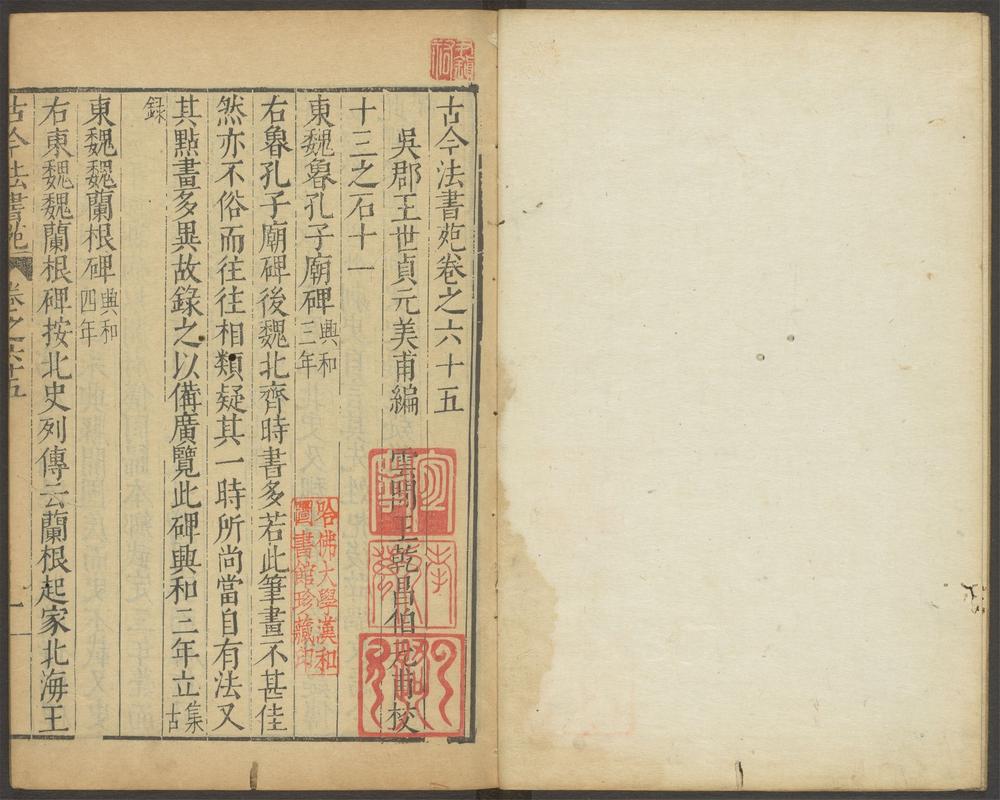 古今法書苑卷之六十五
吳郡王世貞元美甫編 雲間王乾昌伯元甫校
十三之石十一
東魏魯孔子廟碑興和三年
右魯孔子廟碑後魏北齊時書多若此筆畫不甚佳
然亦不俗而往往相類疑其一時所尚當自有法又
其點畫多異故錄之以備廣覽此碑興和三年立集古
錄
東魏魏蘭根碑興和四年
右東魏魏蘭根碑按北史列傳云蘭根起家北海王
古今法書苑 卷之六十五 一
哈佛大學漢和
圖書館珍藏印